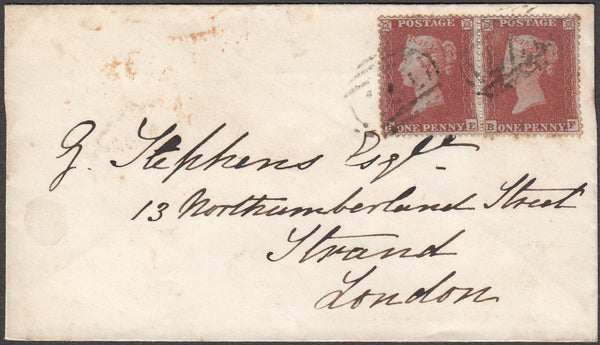 POSTAGE POSTAGE
ONE PENNY E B ONE PENNY F
G. Stephens Esqre
13 Northumberland Street
Strand
London